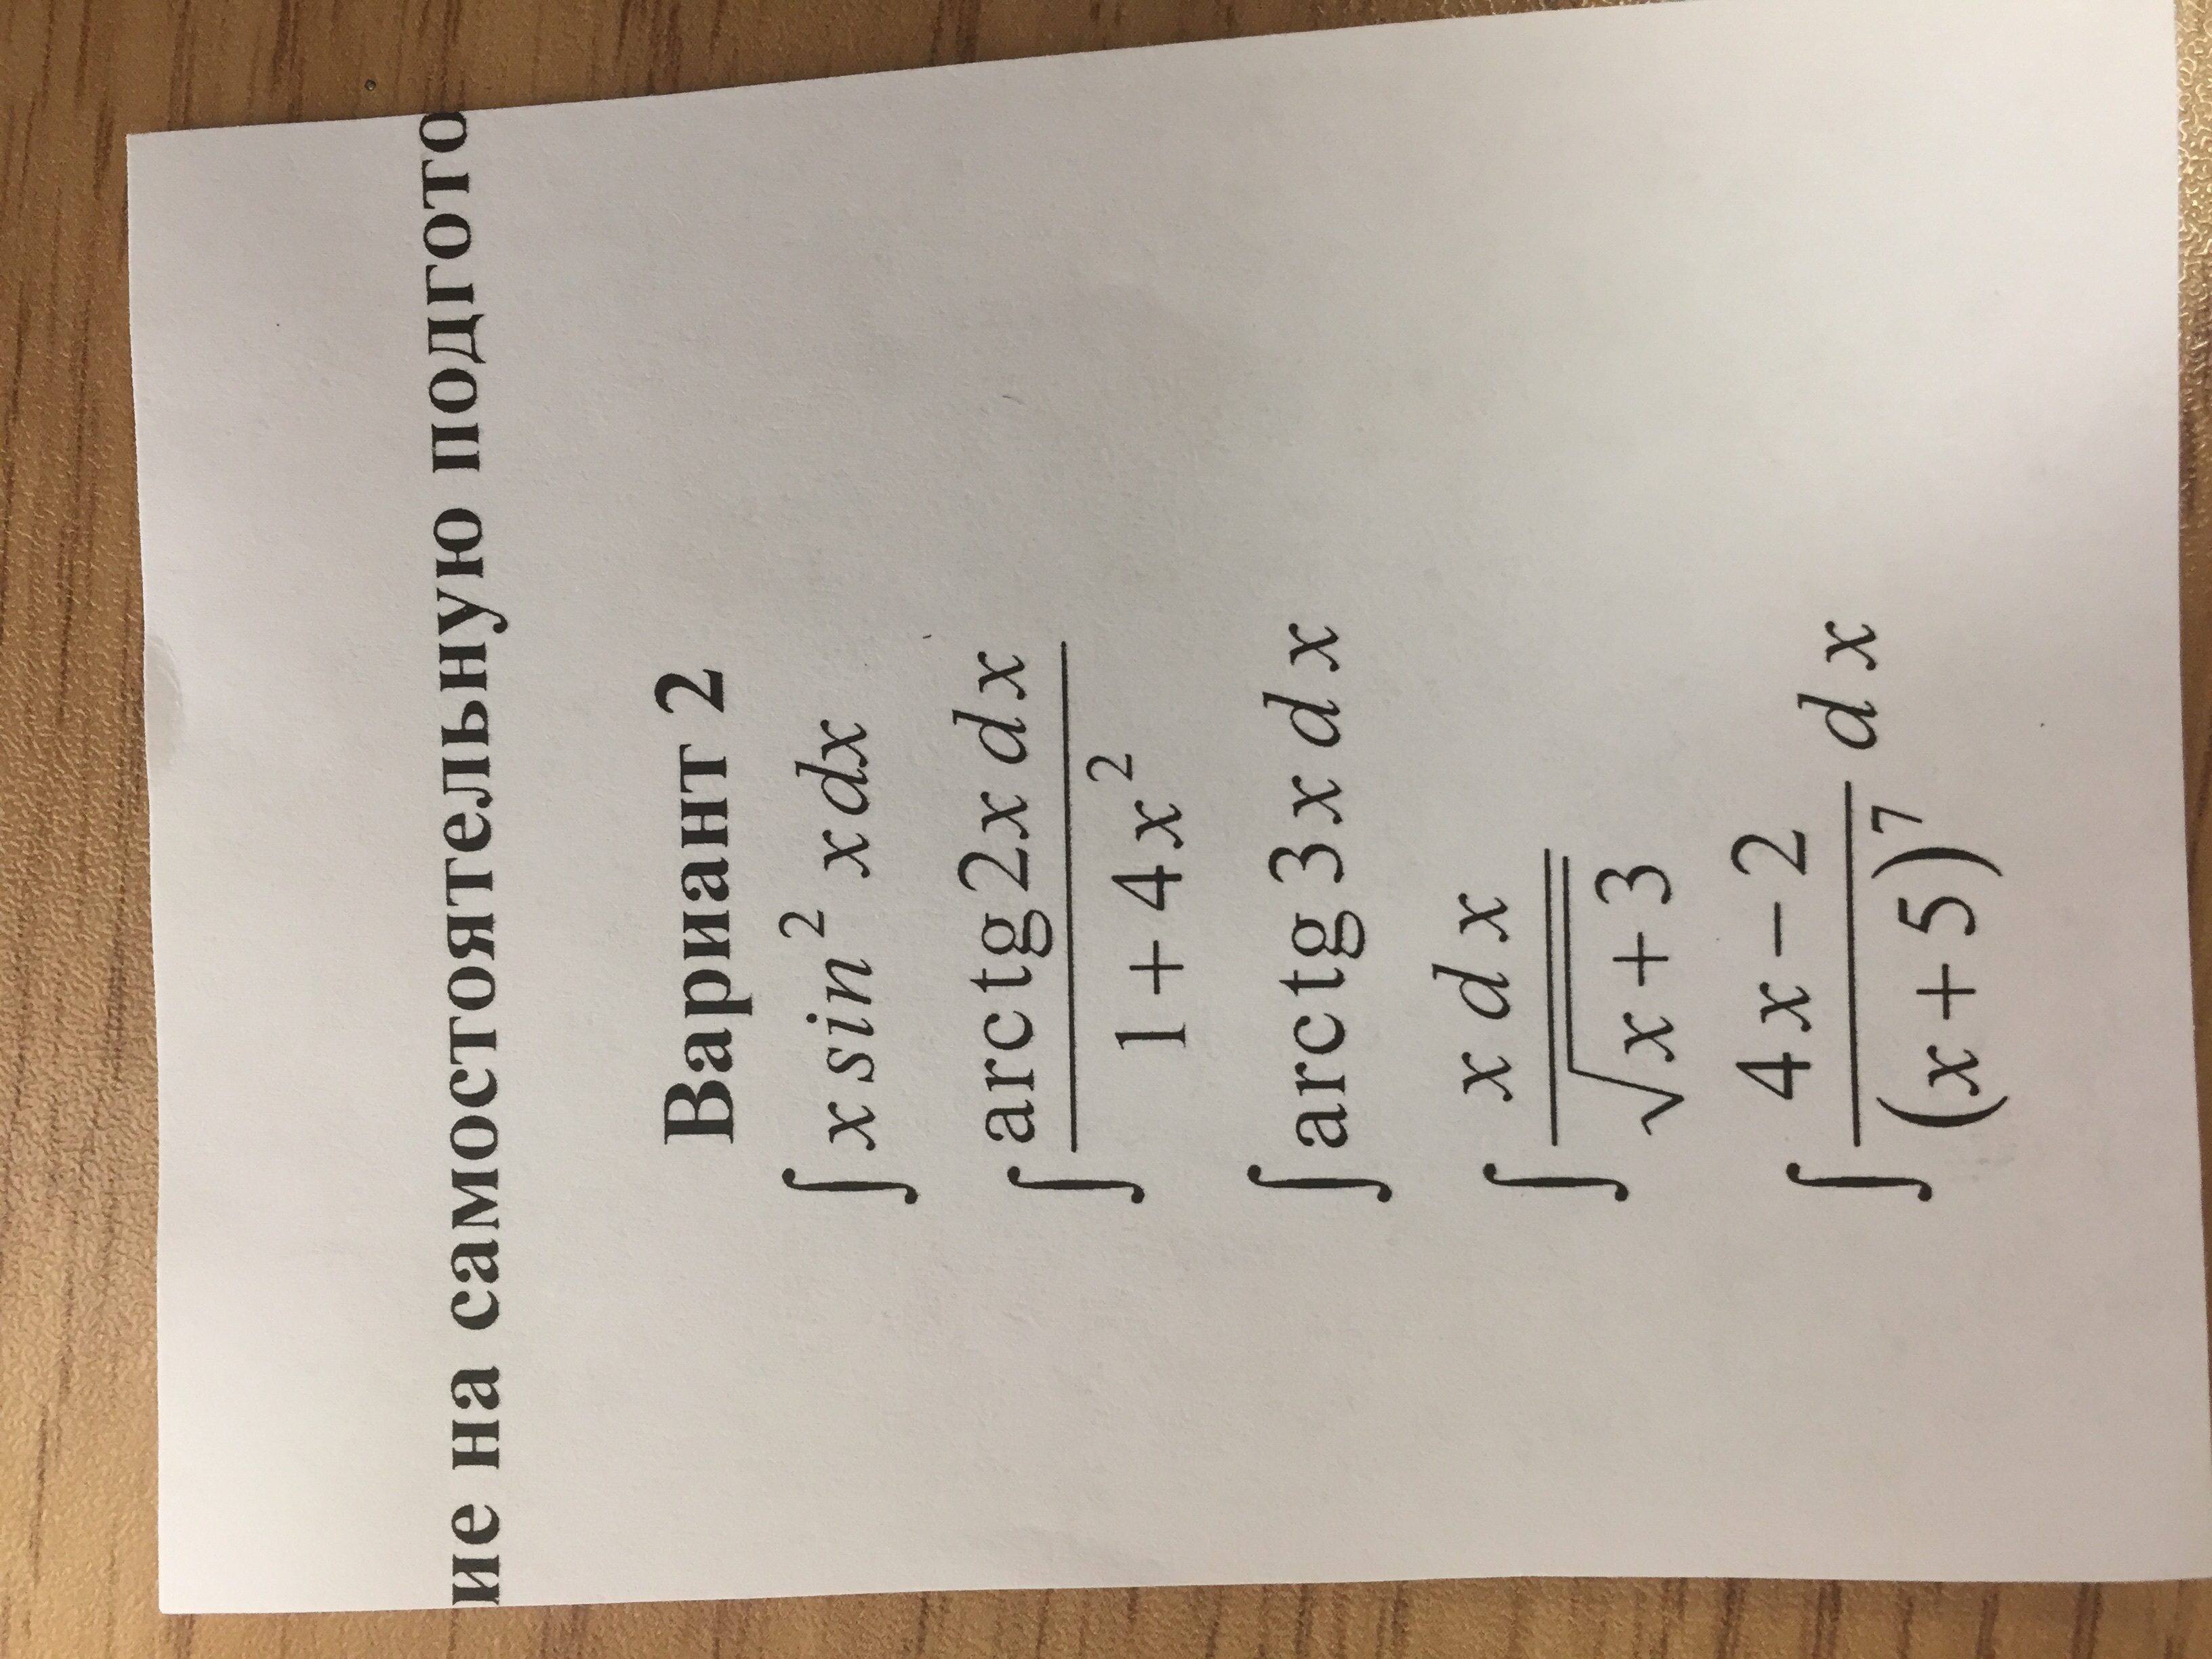 ие на самостоятельную подгото
Вариант 2
∫ x sin² x dx
∫ arctg 2x dx / 1 + 4x²
∫ arctg 3x dx
∫ x dx / √x + 3
∫ 4x − 2 / (x + 5)⁷ dx